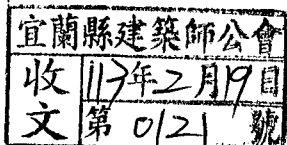 宜蘭縣建築師公會
收文
113年2月19日
第0121號